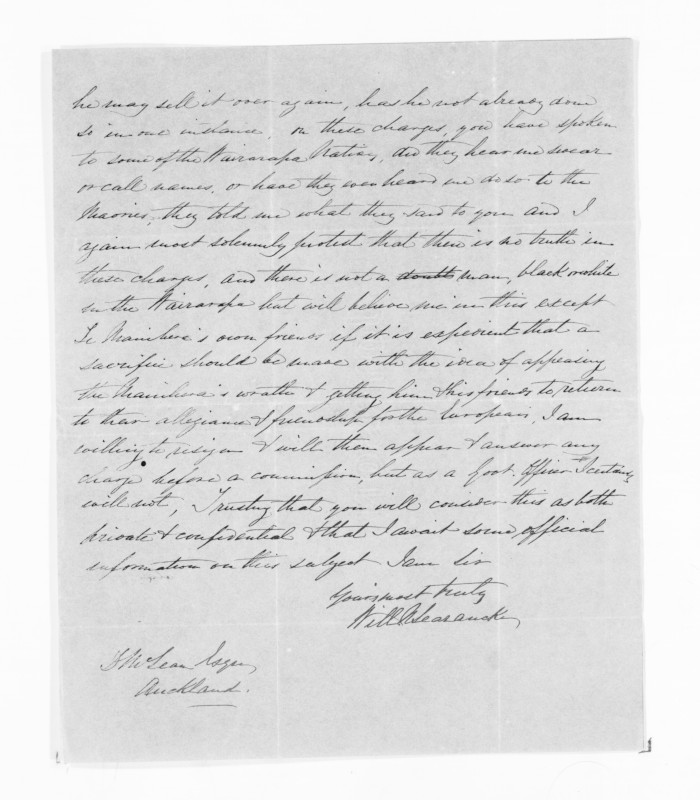 he may sell it over again, has he not already done
so in one instance. On these charges, you have spoken
to some of the Wairarapa Natives, did they hear me swear
or call names, or have they ever heard me do so to the
Maories, they told me what they said to you and I
again most solemnly protest that there is no truth in
these charges, and there is not a doubt man, black or white
in the Wairarapa but will believe me in this except
Te Manihera's own friends if it is expedient that a
sacrifice should be made with the idea of appeasing
the Manihera's wrath & getting him & his friends to return
to their allegiance & friendship for the Europeans, I am
willing to resign & will then appear & answer any
charge before a commission, but as a Govt. Officer I certainly
will not, Trusting that you will consider this as both
private & confidential & that I await some official
information on this subject I am Sir
Yours most truly
Will N Searancke
D McLean Esqre
Auckland.